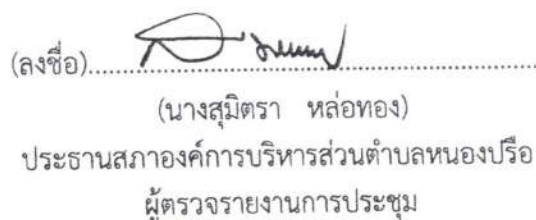 (ลงชื่อ)......................................................................
(นางสุมิตรา หล่อทอง)
ประธานสภาองค์การบริหารส่วนตำบลหนองปรือ
ผู้ตรวจรายงานการประชุม